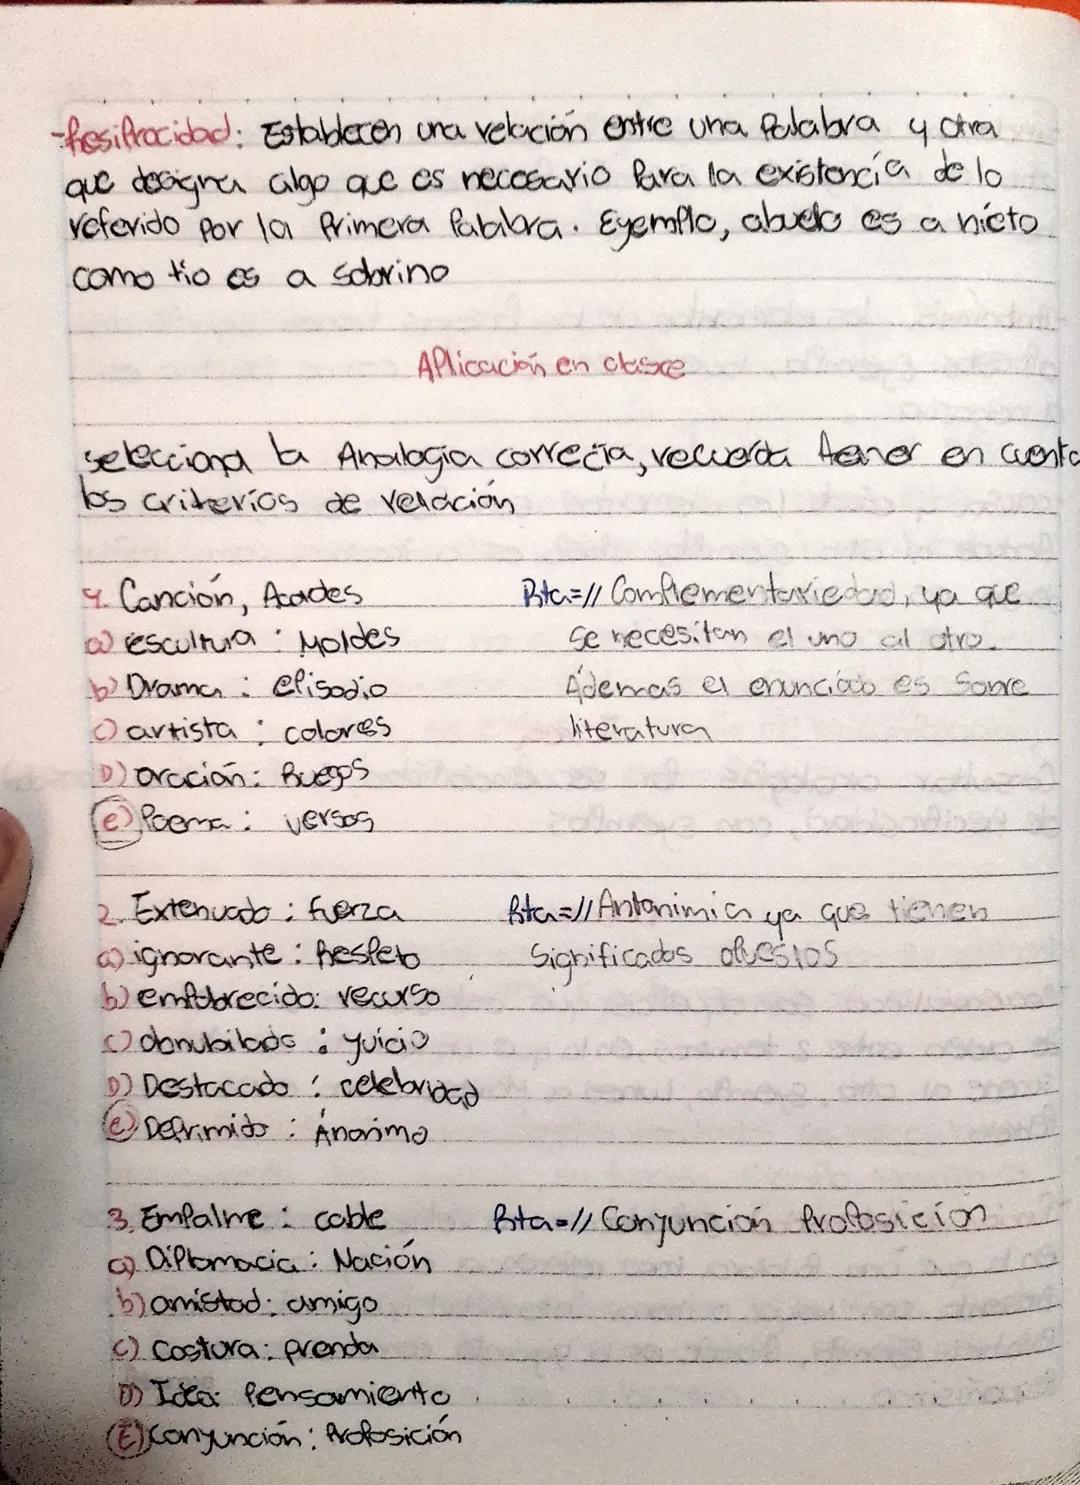 -Resiprocidad: Establecen una relación entre una Palabra y otra
que designa algo que es necesario Para la existencía de lo
referido Por la Primera Palabra. Eyemplo, abuelo es a nieto
como tio es a sobrino
Aplicación en clasce
selecciona la Analogia correcta, recuerda tener en cuenta
los criterios de relación
1. Canción, Acordes
Rta=// Complementariedad, ya que
a) escultura : Moldes
se necesitan el uno al otro.
b) Drama : episodio
Ádemas el enunciado es sobre
c) artista : colores
literatura
D) oración: Ruegos
e) Poema : versos
2. Extenuado : fuerza
Rta=// Antonimia ya que tienen
a) ignorante : Respeto
Significados opuestos
b) empobrecido: recurso
c) : yuicio
D) Destacado : celebridad
e) Deprimido : Ánonimo
3. Empalme : cable
Rta=// Conyunción Proposición
a) Diplomacia : Nación
b) amistad: amigo
c) Costura: prenda
D) Idea: Pensamiento
E) Conyunción: Proposición